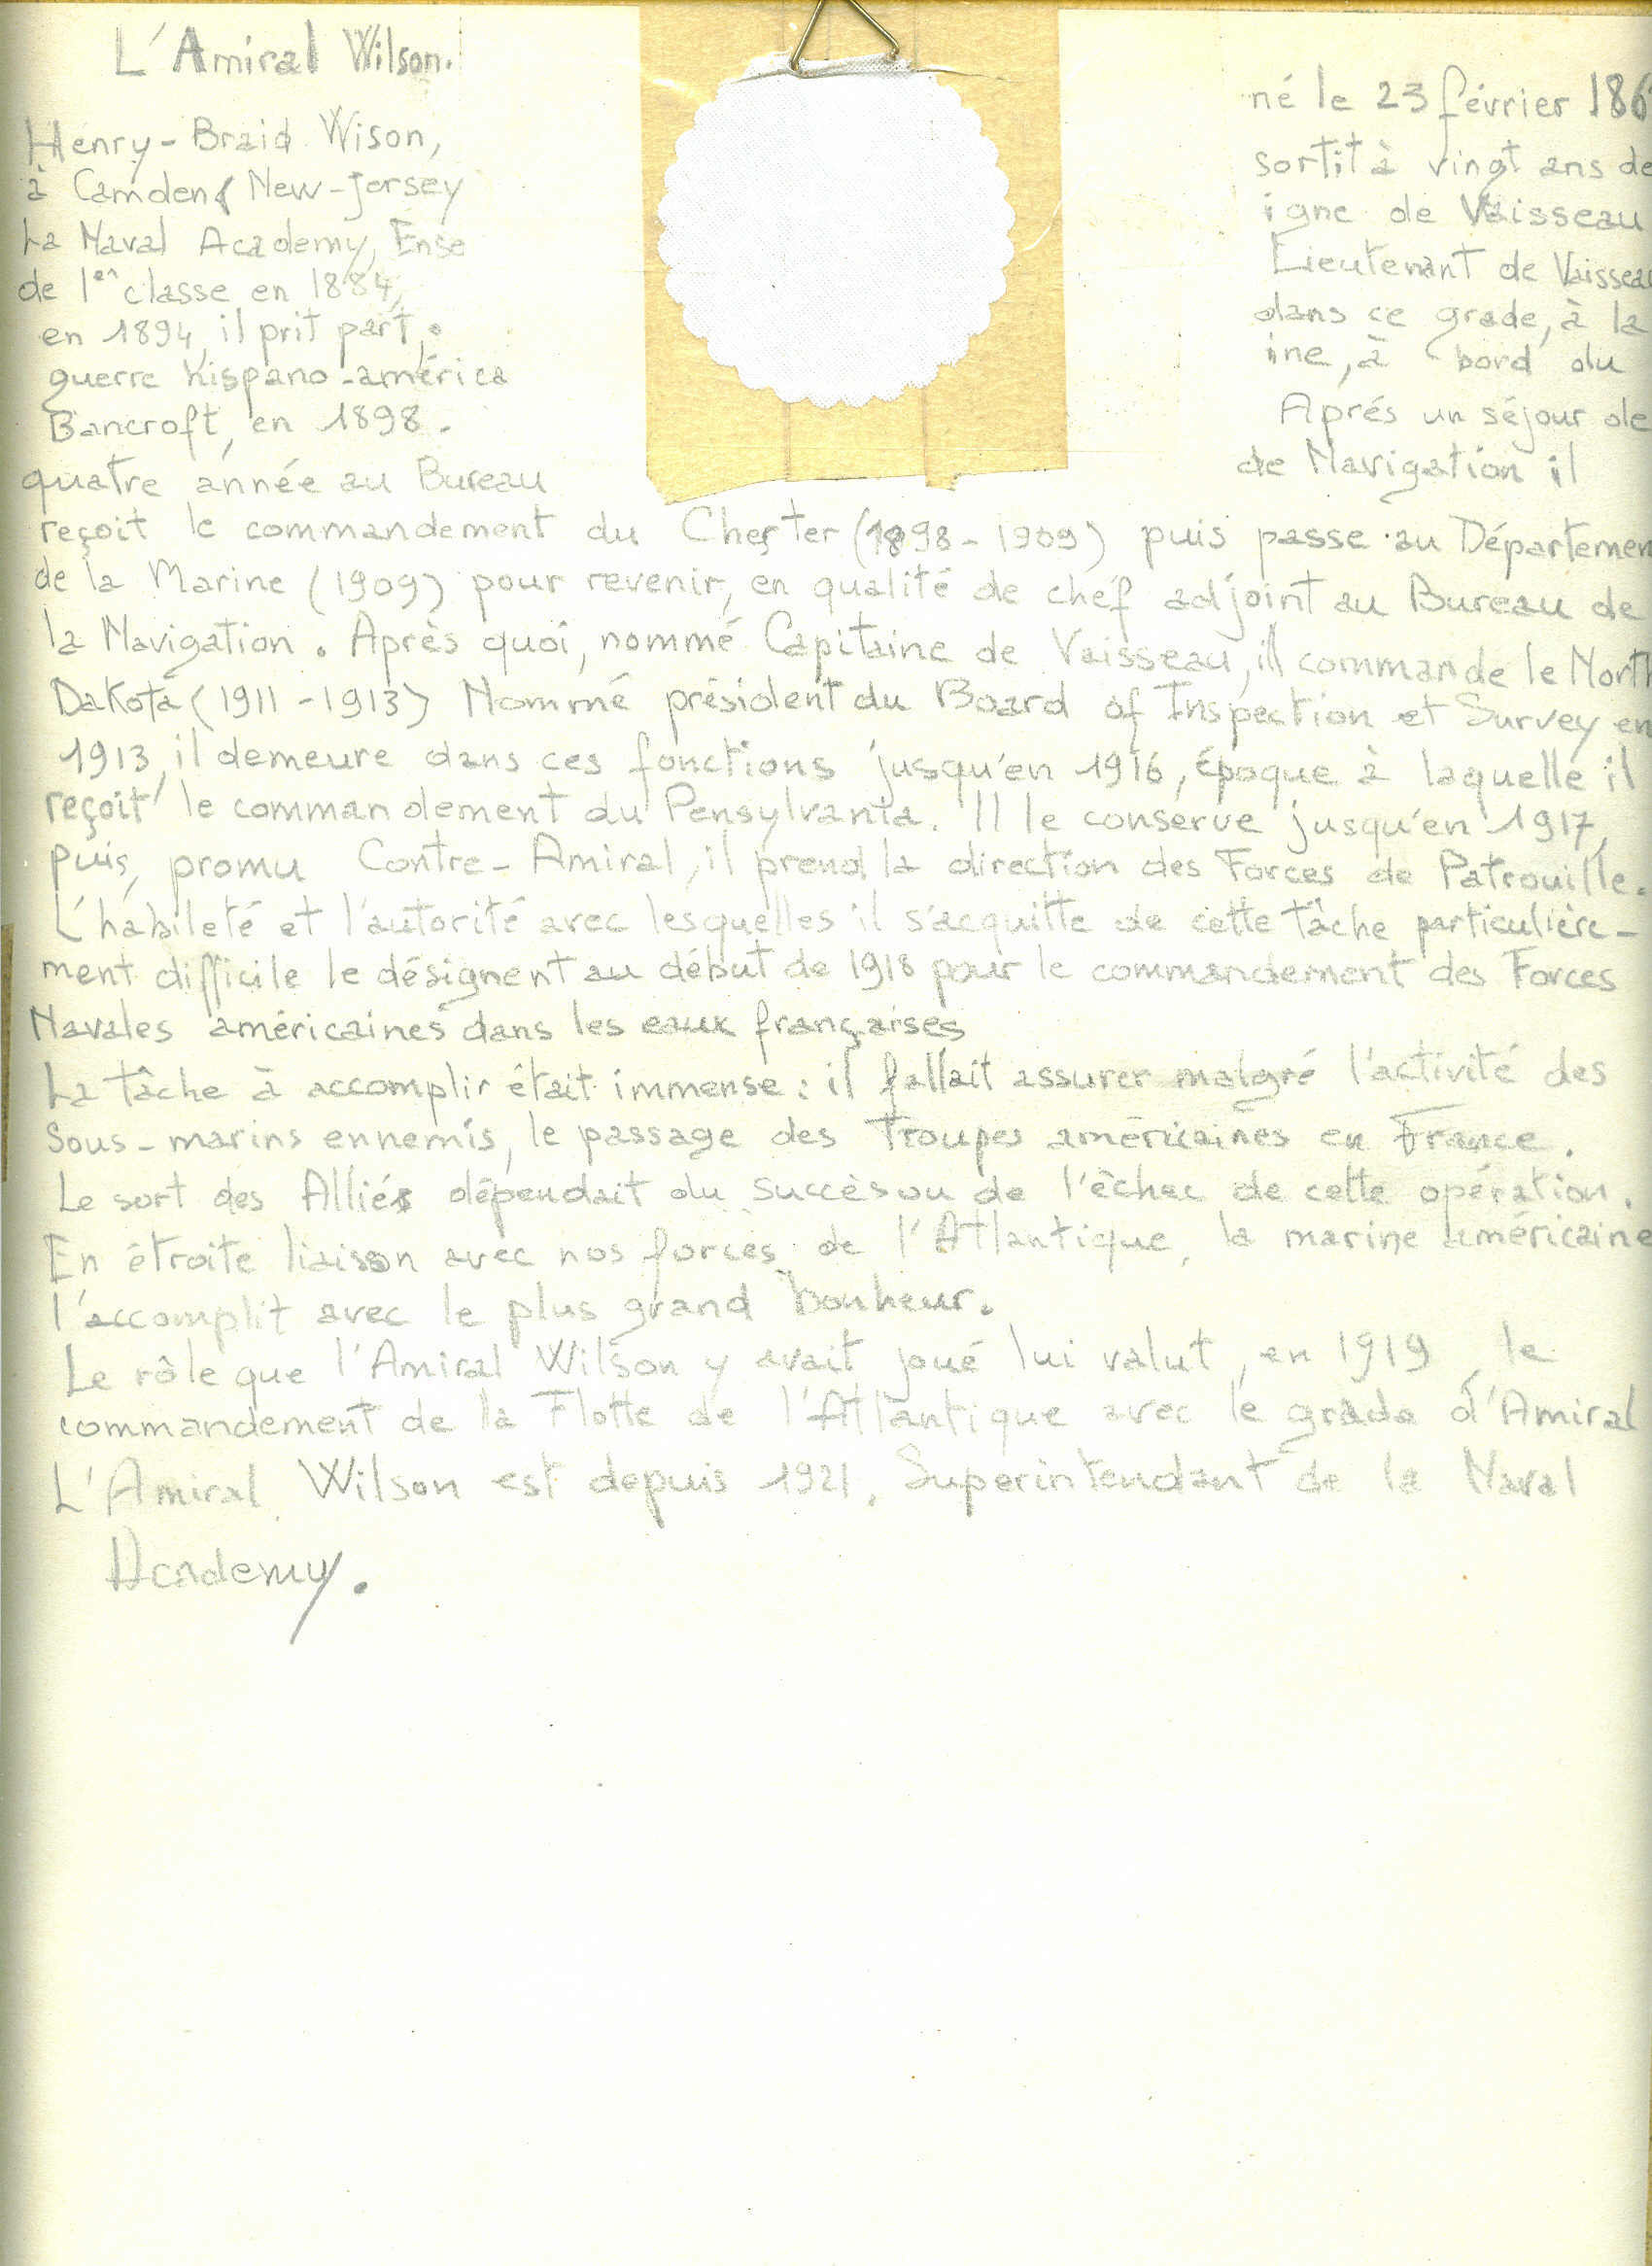 L'Amiral Wilson.
Henry-Braid Wison, né le 23 février 186
à Camden New-Jersey sortit à vingt ans de
La Naval Academy, Ense igne de Vaisseau
de 1er classe en 1884, Lieutenant de Vaisseau
en 1894, il prit part, dans ce grade, à la
guerre hispano-américa ine, à bord du
Bancroft, en 1898. Aprés un séjour de
quatre année au Bureau de Navigation il
reçoit le commandement du Chester (1898-1909) puis passe au Départemen
de la Marine (1909) pour revenir, en qualité de chef adjoint au Bureau de
la Navigation. Après quoi, nommé Capitaine de Vaisseau, il commande le North
Dakota (1911-1913) Nommé président du Board of Inspection et Survey en
1913, il demeure dans ces fonctions jusqu'en 1916, époque à laquelle il
reçoit le commandement du Pensylvania. Il le conserve jusqu'en 1917,
puis, promu Contre-Amiral, il prend la direction des Forces de Patrouille.
L'habileté et l'autorité avec lesquelles il s'acquitte de cette tâche particulière-
ment difficile le désignent au début de 1918 pour le commandement des Forces
Navales américaines dans les eaux françaises
La tâche à accomplir était immense : il fallait assurer malgré l'activité des
Sous-marins ennemis, le passage des Troupes américaines en France.
Le sort des Alliés dépendait du succès ou de l'échec de cette opération.
En étroite liaison avec nos forces de l'Atlantique, la marine américaine
l'accomplit avec le plus grand bonheur.
Le rôle que l'Amiral Wilson y avait joué lui valut, en 1919, le
commandement de la Flotte de l'Atlantique avec le grade d'Amiral
L'Amiral Wilson est depuis 1921, Superintendant de la Naval
Academy.